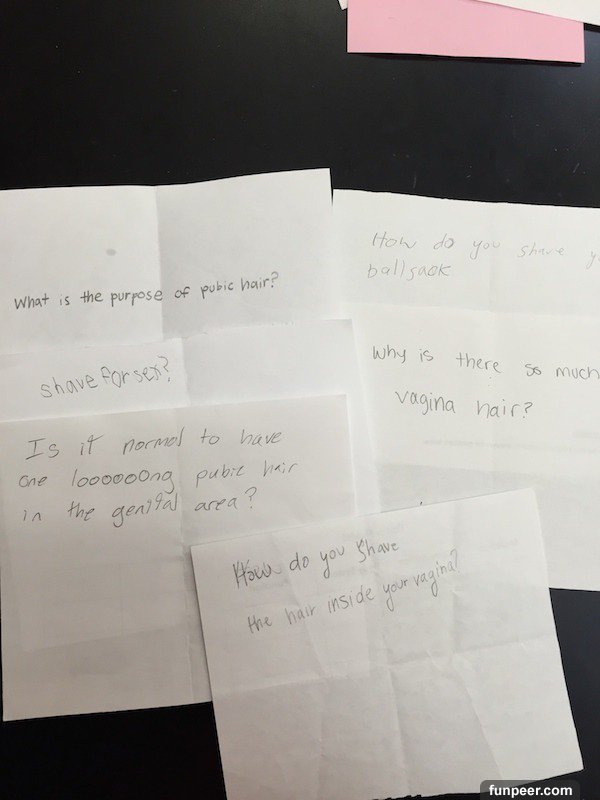 What is the purpose of pubic hair?
shave for sex?
Is it normal to have
one loooooong pubic hair
in the genital area?
How do you shave y
ballsack
Why is there so much
vagina hair?
How do you shave
the hair inside your vagina?
funpeer.com